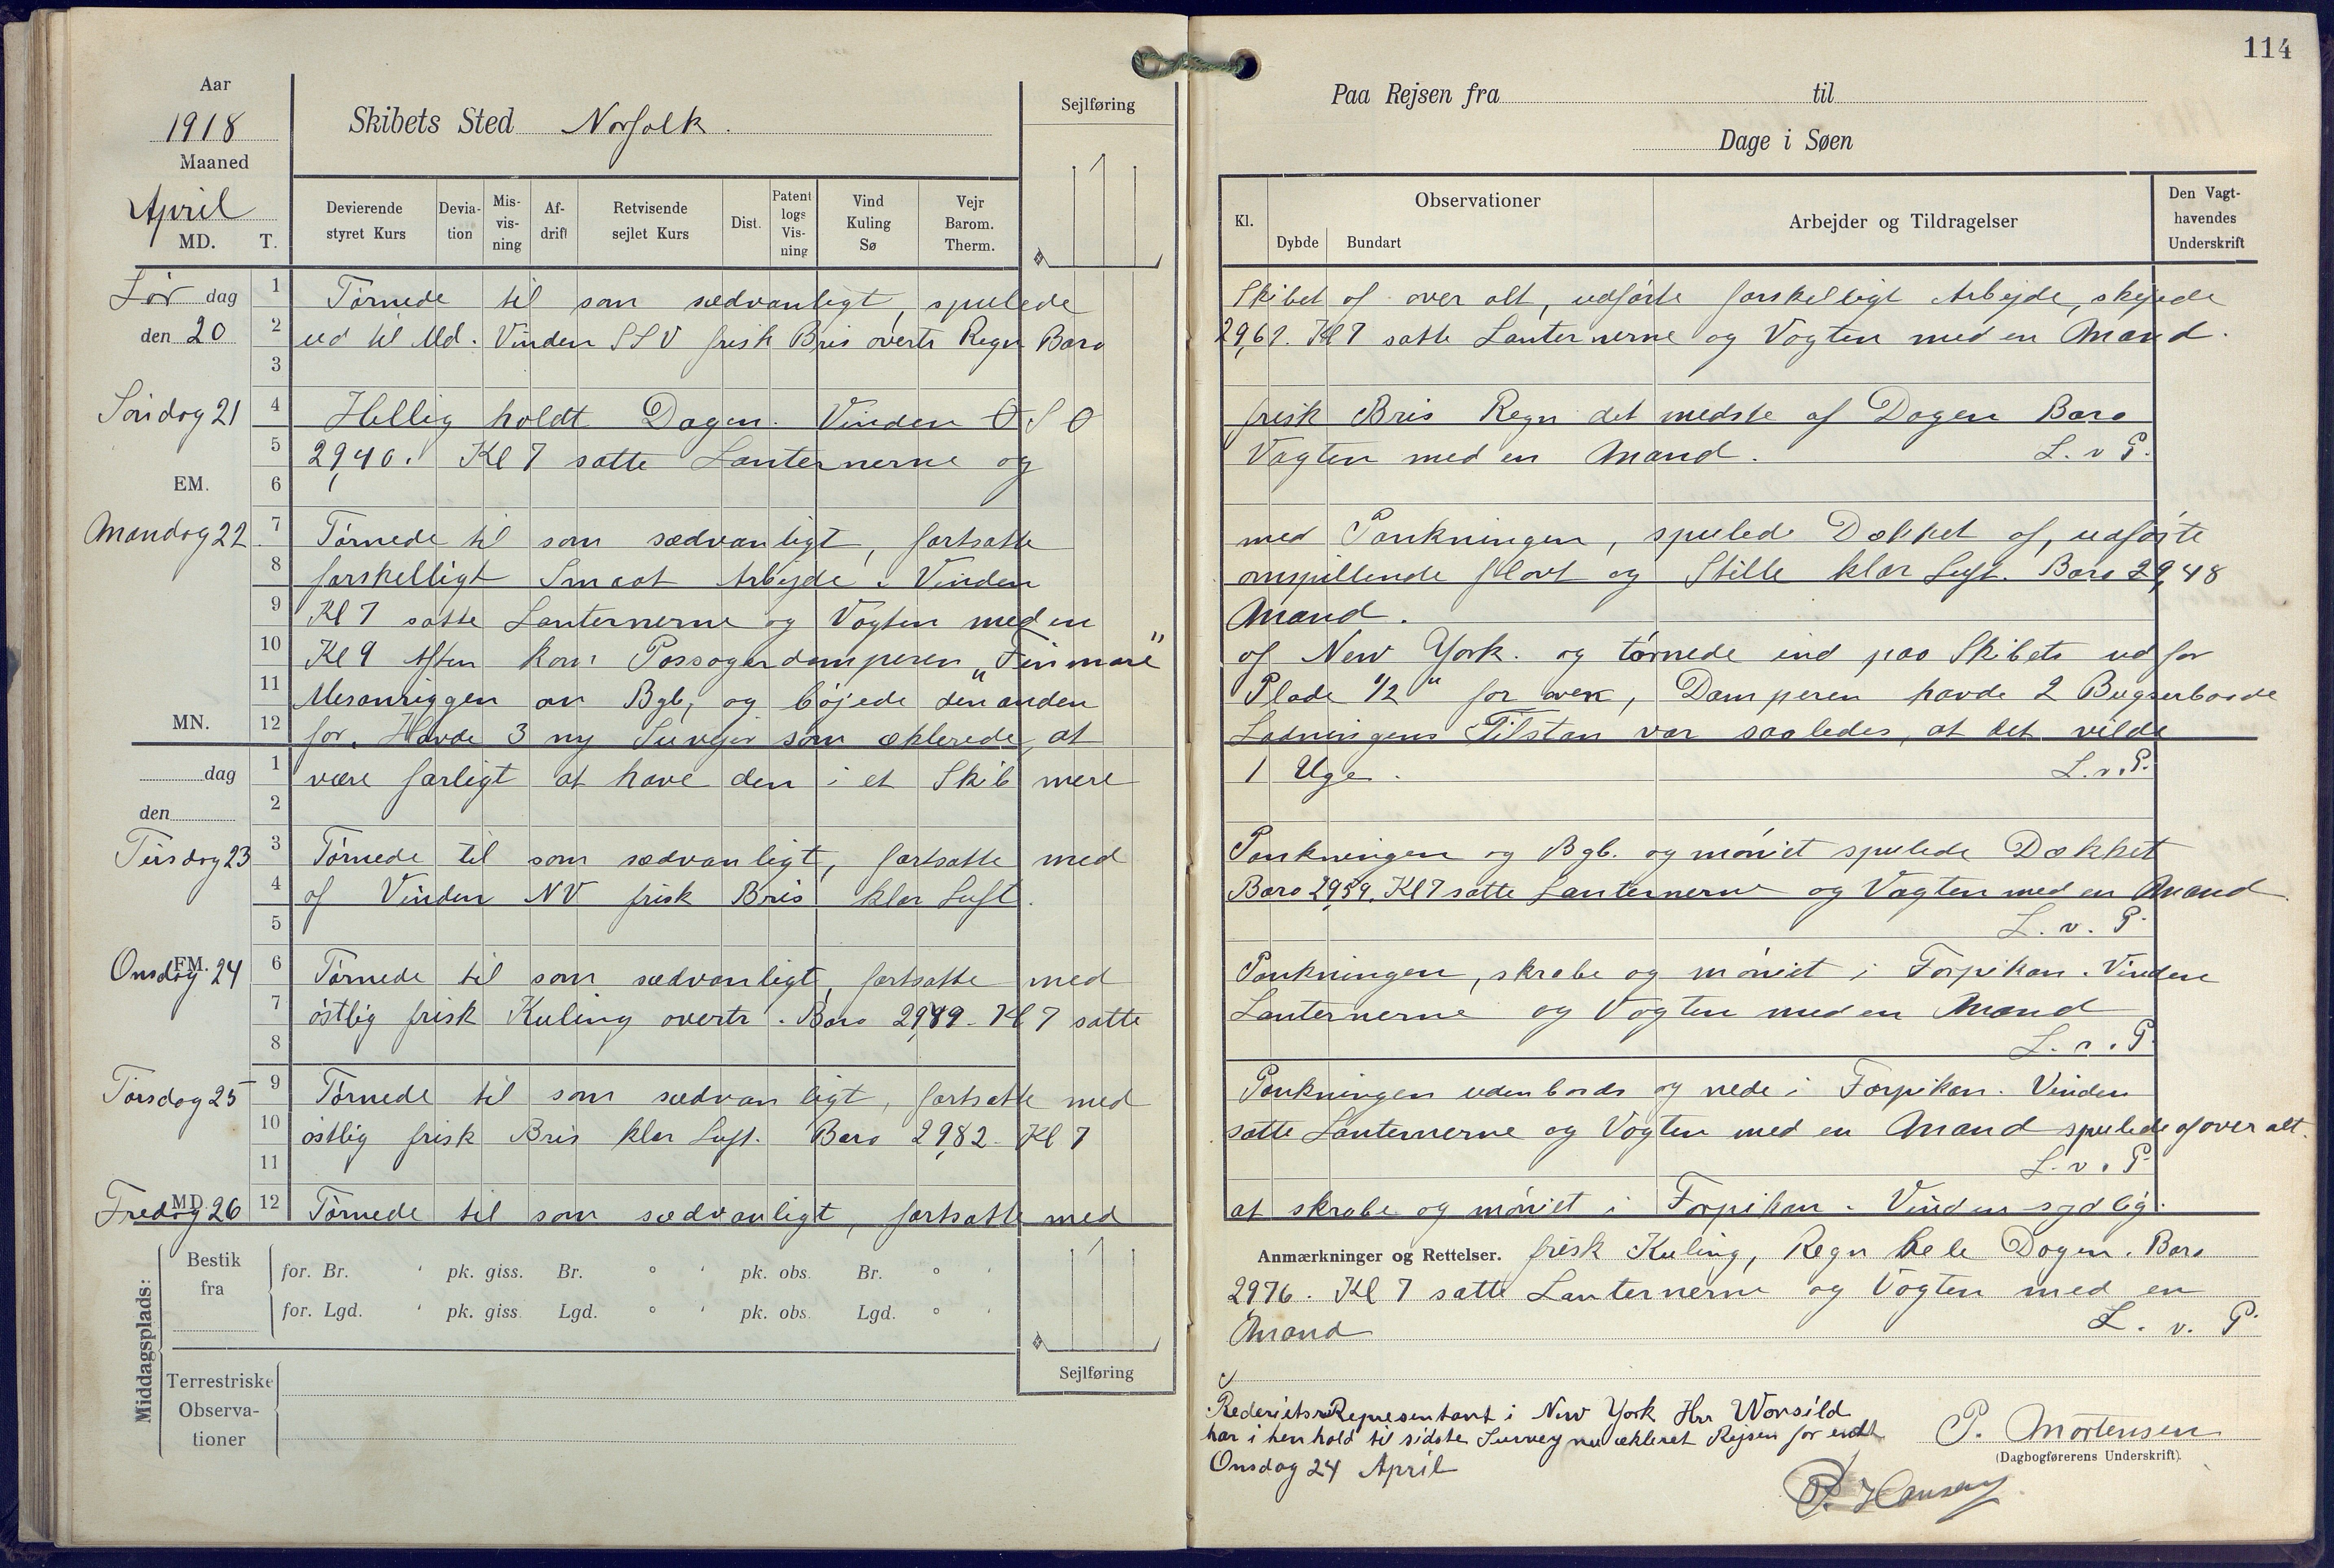 114
Aar
1918
Maaned
April
MD. T.
Skibets Sted Norfolk.
Sejlføring
Devierende styret Kurs
Deviation
Misvisning
Afdrift
Retvisende sejlet Kurs
Dist.
Patent logs Visning
Vind Kuling Sø
Vejr Barom. Therm.
Lør dag
den 20
1 Tørnede til som sædvanligt, spulede
2 ud til Md. Vinden SSV frisk Bris overtr Regn Baro
3
Søndag 21
4 Hellig holdt Dagen. Vinden O S O
5 29,40. Kl 7 satte Lanternerne og
EM.
6
Mandag 22
7 Tørnede til som sædvanligt, fortsatte
8 forskelligt Smaat Arbejde. Vinden
9 Kl 7 satte Lanternerne og Vagten med en
10 Kl 9 Aften kom Passagerdamperen „Finmare"
11 Mesanriggen om Bgb, og bøjede den anden
MN.
12 for. Havde 3 ny Survejør som æklerede, at
dag
1 være farligt at have den i et Skib mere
den
2
Tirsdag 23
3 Tørnede til som sædvanligt, fortsatte med
4 af Vinden NV frisk Bris klar Luft.
5
FM.
Onsdag 24
6 Tørnede til som sædvanligt, fortsatte med
7 østlig frisk Kuling overtr. Baro 29,89. Kl 7 satte
8
Torsdag 25
9 Tørnede til som sædvanligt, fortsatte med
10 østlig frisk Bris klar Luft. Baro 29,82. Kl 7
11
MD.
Fredag 26
12 Tørnede til som sædvanligt, fortsatte med
Middagsplads:
Bestik fra
for. Br. ' pk. giss. Br. ° ' pk. obs. Br. ° '
for. Lgd. ' pk. giss. Lgd. ° ' pk. obs. Lgd. ° '
Sejlføring
Terrestriske
Observa-
tioner
Paa Rejsen fra til
Dage i Søen
Kl.
Observationer
Dybde
Bundart
Arbejder og Tildragelser
Den Vagt-
havendes
Underskrift
Skibet af over alt, udførte forskelligt Arbejde, skejede
29,61. Kl 7 satte Lanternerne og Vagten med en Mand.
frisk Bris Regn det medste af Dagen Baro
Vagten med en Mand. L. v P.
med Pankningen, spulede Dækket af, udførte
omspillende flovt og Stille klar Luft. Baro 29,48
Mand.
af New York. og tørnede ind paa Skibets ud for
Plade 1/2" for oven, Damperen havde 2 Bugserbaade
Ladningens Tilstan var saaledes, at det vilde
1 Uge. L. v. P.
Pankningen og Bgb. og møniet spulede Dækket
Baro 29,59. Kl 7 satte Lanternerne og Vagten med en Mand.
L. v. P.
Pankningen, skrabe og møniet i Forpikan. Vinden
Lanternerne og Vagten med en Mand
L. v. P.
Pankningen udenbords og nede i Forpikan. Vinden
satte Lanternerne og Vagten med en Mand spulede af over alt.
L. v. P.
at skrabe og møniet i Forpikan. Vinden sydlig.
Anmærkninger og Rettelser. frisk Kuling, Regn hele Dagen. Baro
29,76. Kl 7 satte Lanternerne og Vagten med en
Mand L. v. P.
Rederiets Representant i New York Hrr Worsild
har i henhold til sidste Survey nu ækleret Rejsen for endt
Onsdag 24 April
P. Mortensen
(Dagbogførerens Underskrift).
P. Hansen